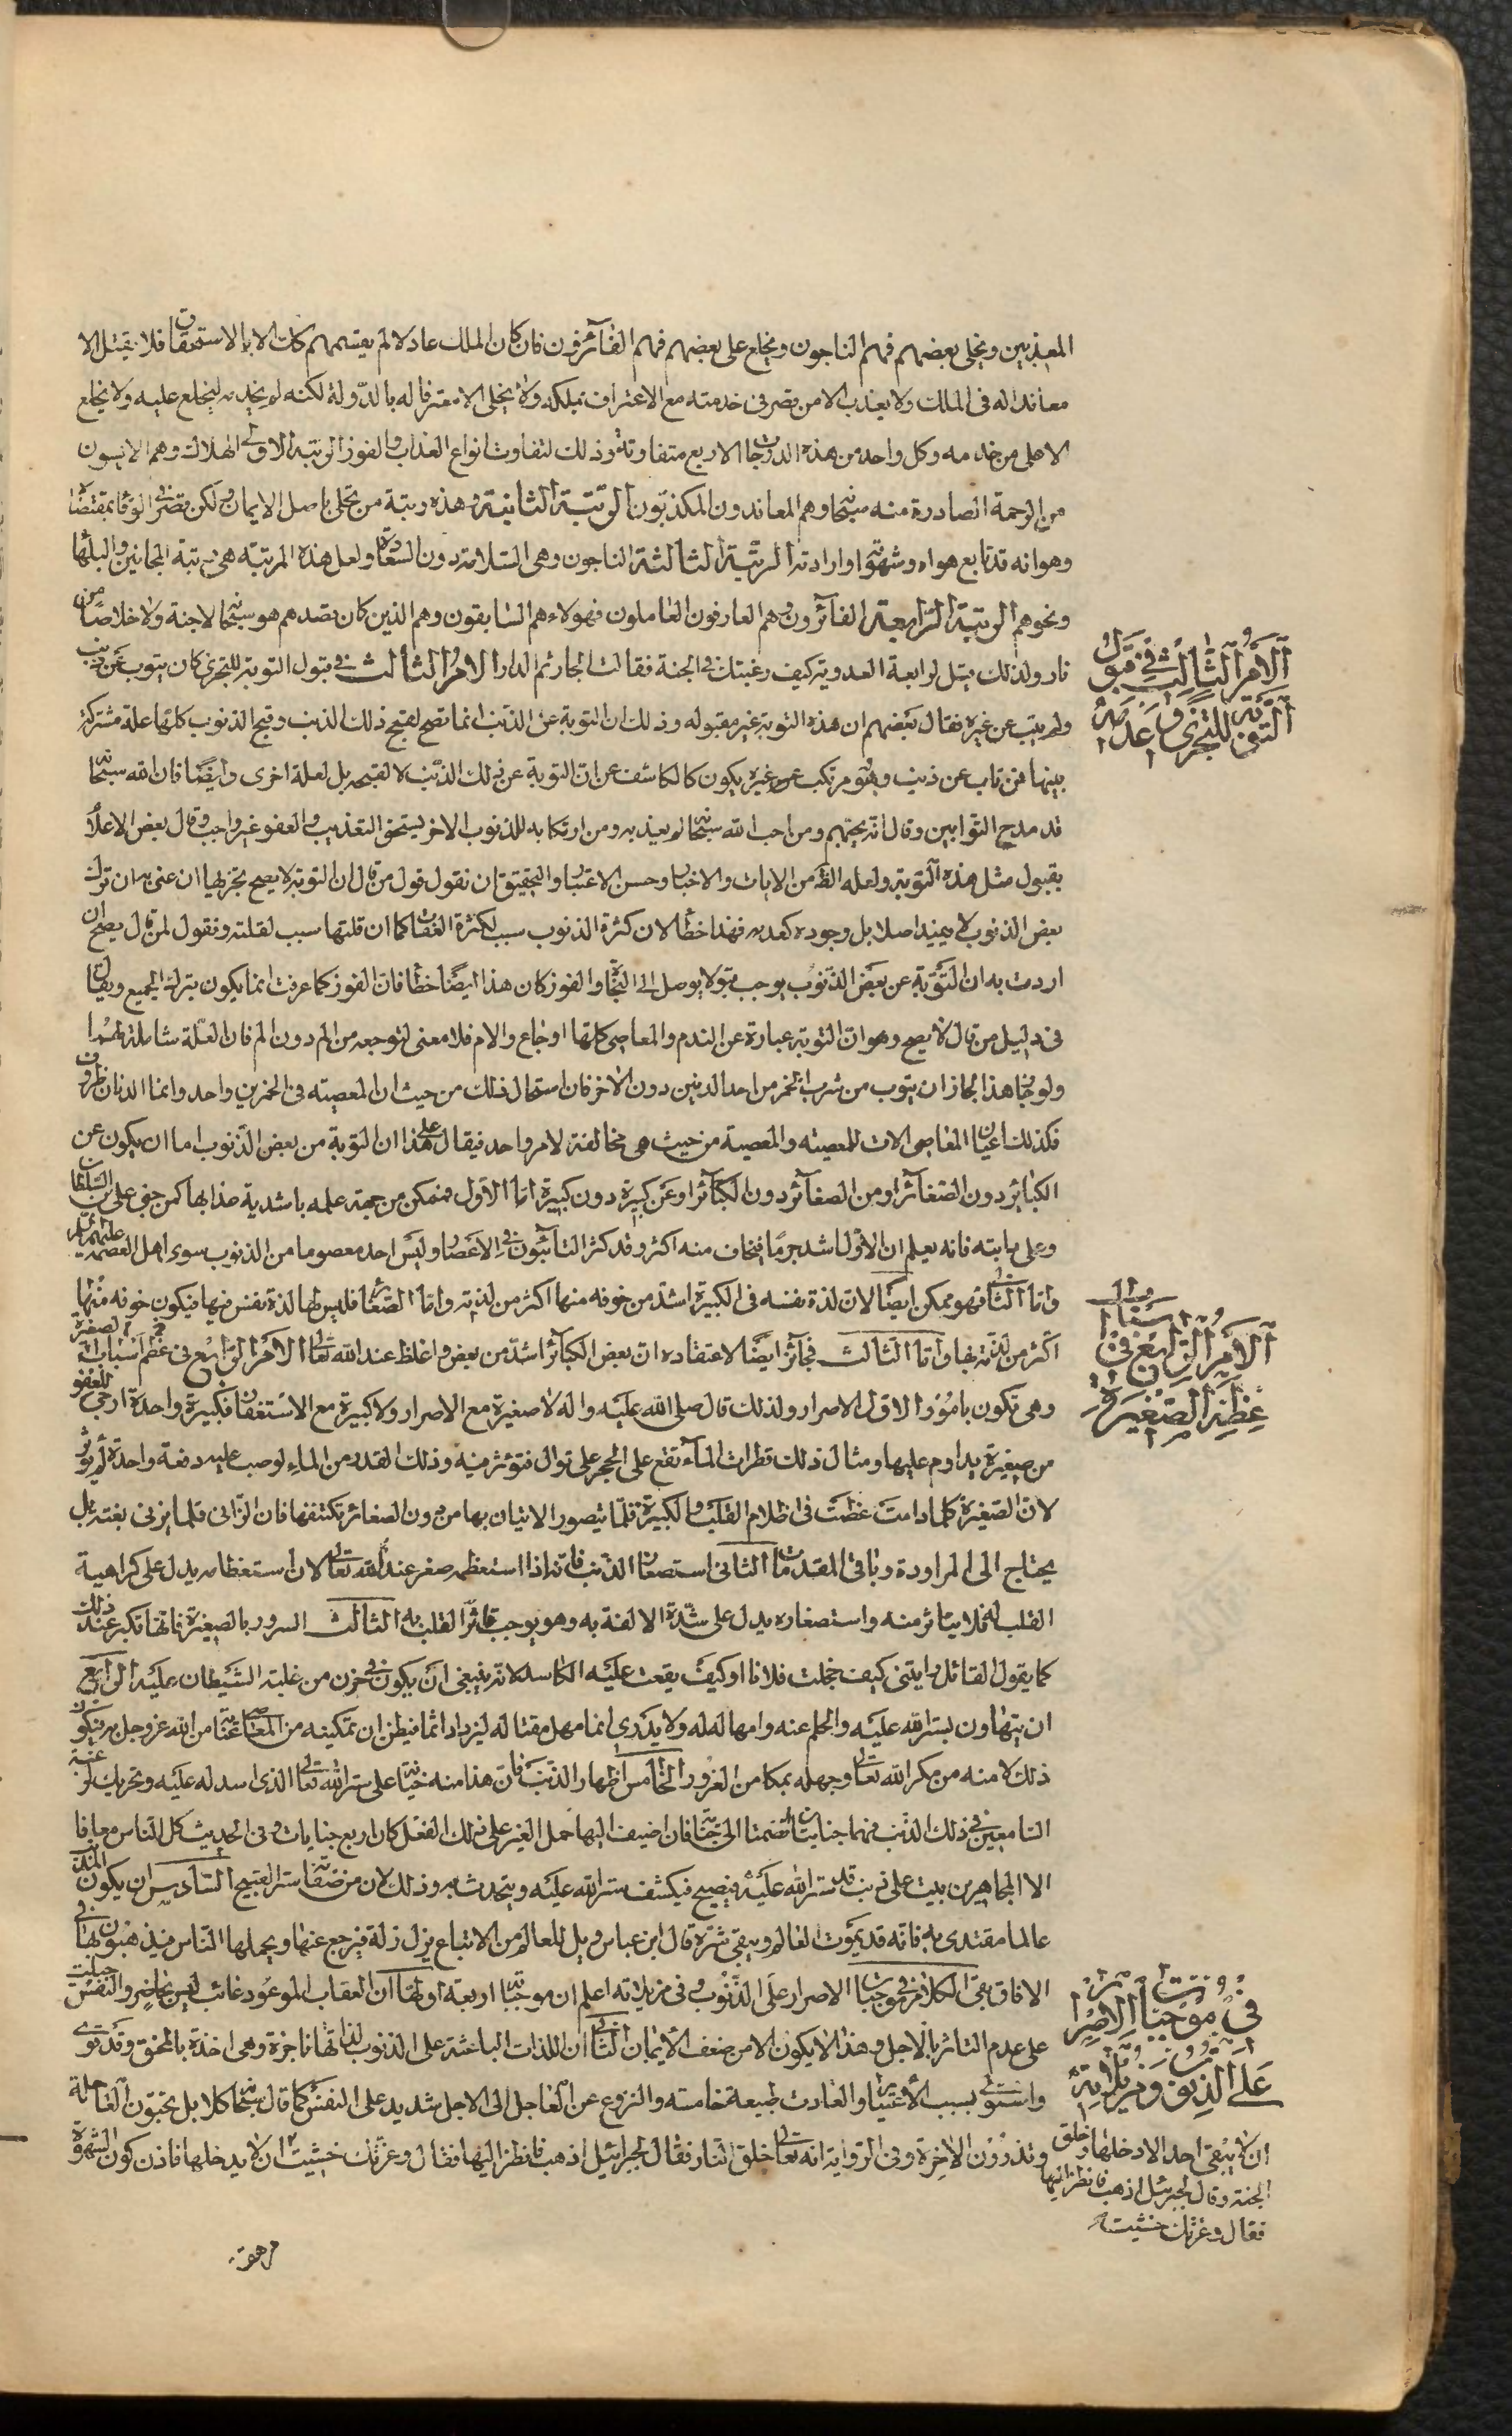 المعذبين ويخلى بعضهم فهم الناجون ويخلع على بعضهم فهم الفائزون فان كان الملك عادلا لم يقسمهم كذلك الا بالاستحقاق فلا يقتل الا
معاندا له فى الملك ولا يعذب الا من قصر فى خدمته مع الاعتراف بملكه ولا يخلى الا معترفا له بالدولة لكنه لم يخدمه ليخلع عليه ولا يخلع
الا على من خدمه وكل واحد من هذه الدرجات الاربع متفاوتة وذلك لتفاوت انواع العذاب والفوز الرتبة الاولى الهلاك وهم الآيسون
من الرحمة الصادرة منه سبحانه وهم المعاندون المكذبون الرتبة الثانية وهذه رتبة من تحلى باصل الايمان ولكن قصر فى الوفا بمقتضاه
وهو انه قد تابع هواه وشهوته وارادته الرتبة الثالثة الناجون وهى السلامة دون السعادة ولعل هذه المرتبة هى رتبة المجانين والبلها
ونحوهم الرتبة الرابعة الفائزون وهم العارفون العاملون فهولاء هم السابقون وهم الذين كان قصدهم هو سبحانه لا جنة ولا خلاصا من
نار ولذلك قيل لرابعة العدوية كيف رغبتك فى الجنة فقالت الجار ثم الدار الامر الثالث فى قبول التوبة للتجزى كان يتوب عن ذنب
ولم يتب عن غيره فقال بعضهم ان هذه التوبة غير مقبوله وذلك ان التوبة عن الذنب انما تصح لقبح ذلك الذنب وقبح الذنوب كلها علة مشتركة
بينها فمن تاب عن ذنب وهو مرتكب غيره يكون كالكاشف عن ان التوبة عن ذلك الذنب لا لقبحه بل لعلة اخرى وايضا فان الله سبحانه
قد مدح التوابين وقال انه يحبهم ومن احب الله سبحانه لم يعذبه ومن ارتكابه للذنوب الاخر يستحق التعذيب والعفو غير واجب وقال بعض الاعلام
بقبول مثل هذه التوبة ولعله الظ من الايات والاخبار وحسن الاعتبار والتحقيق ان نقول قول من قال ان التوبة لا يصح تجزيها ان عنى به ان ترك
بعض الذنوب لا يفيد اصلا بل وجوده كعدمه فهذا خطا لان كثرة الذنوب سبب لكثرة العقاب كما ان قلتها سبب لقلته ونقول لمن قال يصح ان
اردت به ان التوبة عن بعض الذنوب يوجب قبولا يوصل الى النجاة والفوز كان هذا ايضا خطا فان الفوز كما عرفت انما يكون بترك الجميع ويقال
فى دليل من قال لا يصح وهو ان التوبة عبارة عن الندم والمعاصى كلها اوجاع والام فلا معنى لتوجعه من الم دون الم فان العلة شاملة لهما
ولو جاز هذا لجاز ان يتوب من شرب الخمر من احد الدنين دون الاخر فان استحال ذلك من حيث ان المعصيته فى الخمرين واحد وانما الدنان ظروف
فكذلك اعيان المعاصى الات للمعصيته والمعصية من حيث هى مخالفة لامر واحد فيقال على هذا ان التوبة من بعض الذنوب اما ان يكون عن
الكبائر دون الصغائر او من الصغائر دون الكبائر او عن كبيرة دون كبيرة اما الاول فممكن من جهة علمه باشدية عذابها كمن جنى على ابن السلطان
وعلى دابته فانه يعلم ان الاول اشد جرما فيخاف منه اكثر وقد كثر التائبون فى الاعصار وليس احد معصوما من الذنوب سوى اهل العصمة عليهم السلم
واما الثانى فهو ممكن ايضا لان لذة نفسه فى الكبيرة اشد من خوفه منها اكثر من لذته واما الصغائر فليس لها لذة نفس فيها فيكون خوفه منها
اكثر من لذته بها واما الثالث فجائز ايضا لاعتقاده ان بعض الكبائر اشد من بعض واغلظ عند الله تعالى الامر الرابع فى عظم اسباب الصغيرة
وهى تكون بامور الاول الاصرار ولذلك قال صلى الله عليه واله لا صغيرة مع الاصرار ولا كبيرة مع الاستغفار فكبيرة واحدة ارجى للعفو
من صغيرة يداوم عليها ومثال ذلك قطرات الماء تقع على الحجر على توال فتؤثر فيه وذلك القدر من الماء لو صب عليه دفعة واحدة لم يؤثر
لان الصغيرة كلما دامت عظمت فى اظلام القلب والكبيرة قلما يتصور الاتيان بها من دون الصغائر تكتنفها فان الزانى قلما يزنى بغتة بل
يحتاج الى المراودة وباقى المقدمات الثانى استصغار الذنب فانه اذا استعظمه صغر عند الله تعالى لان استعظامه يدل على كراهية
القلب له فلا يتاثر منه واستصغاره يدل على شدة الالفة به وهو يوجب تاثر القلب به الثالث السرور بالصغيرة فانها تكبر عند ذلك
كما يقول القائل رايتنى كيف خجلت فلانا او كيف يقعت عليه الكاسد لانه ينبغى ان يكون فى حزن من غلبة الشيطان عليه الرابع
ان يتهاون بستر الله عليه والحلم عنه وامهاله له ولا يدرى انما مهل مقتا له ليزداد اثما فيظن ان تمكينه من المعاصى عناية من الله عز وجل به فيكون
ذلك لامنه من مكر الله تعالى وجهله بمكامن الغرور الخامس اظهار الذنب فان هذا منه خيانة على ستر الله تعالى الذى اسدله عليه وتحريك لرغبة
السامعين فى ذلك الذنب فهما جنايتان انضمتا الى جنايته فان اضيف اليها حمل الغير على ذلك الفعل كان اربع جنايات وفى الحديث كل الناس معافا
الا المجاهرين يبيت على ذنب قد ستر الله عليه فيصبح فيكشف ستر الله عليه ويتحدث به وذلك لان من صفاته ستر القبيح السادس ان يكون المذنب
عالما مقتدى به فانه قد يموت العالم ويبقى شره قال ابن عباس ويل للعالم من الاتباع يزل زلة فيرجع عنها ويحملها الناس فيذهبون بها فى
الافاق بقى الكلام فى موجبات الاصرار على الذنوب وفى مزيلاته اعلم ان موجباته اربعة اولها ان العقاب الموعود غائب ليس بحاضر والنفس جبلت
على عدم التاثر بالاجل وهذا لا يكون الا من ضعف الايمان الثانى ان اللذات الباعثة على الذنوب لذاتها ناجزة وهى اخذة بالمخنق وقد قوى
واستولى بسبب الاعتياد والعادت طبيعة خامسته والنزوع عن العاجل الى الاجل شديد على النفس كما قال سبحانه كلا بل تحبون العاجلة
وتذرون الاخرة وفى الرواية انه تعالى خلق النار فقال لجبرائيل اذهب فانظر اليها فقال وعزتك خشيت ان لا يدخلها فاذن كون الشهوة
الامر الثالث فى قبول
التوبة للتجزى وعدمه
الامر الرابع فى اسباب
عظم الصغيرة
فى موجبات الاصرار
على الذنوب ومزيلاته
ان لا يبقى احد الا دخلها وخلق
الجنة وقال لجبرئيل اذهب فانظر اليها
فقال وعزتك خشيت
مرهقه